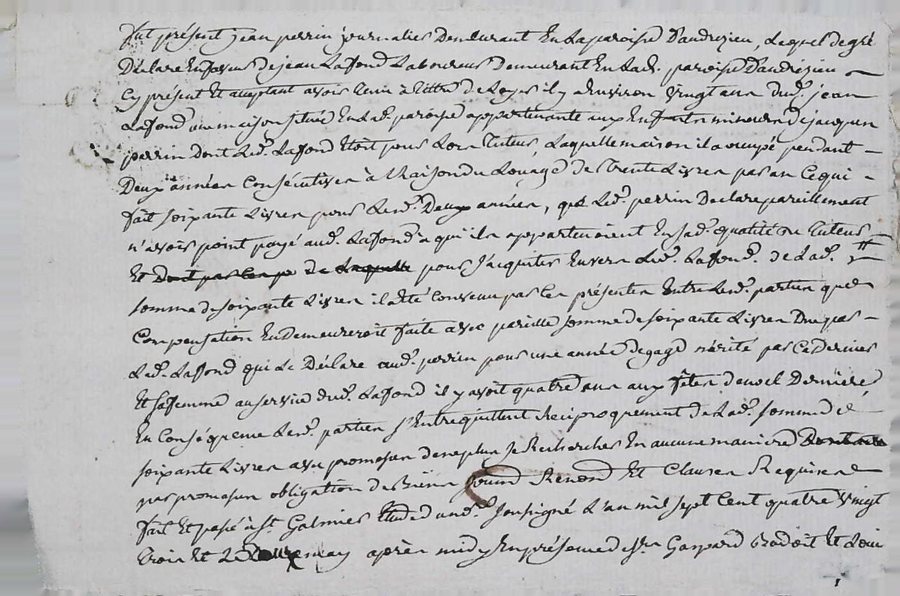 fut présent jean perrin journalier demeurant En la paroisse d'andrezieu, Lequel de gré
Déclare En faveur de jean Laffond Laboureur demeurant En lad. paroisse d'andrezieu
Cy présent Et acceptant avoir tenu à titre de Loyer il y a Environ vingt ans dud. jean
Laffond une maison située En lad. paroisse appartenante aux Enfants mineurs de jacques
perrin Dont led. Laffond Etoit pour lors tuteur, Laquelle maison il a occupé pendant
Deux années Consécutives à Raison du Louage de trente Livres par an Ce qui
fait soixante Livres pour lesd. Deux années, que led. perrin Declare pareillement
n'avoir point payé aud. Laffond a qui ils appartenoient En sad. qualité de tuteur
Et pour s'acquiter Envers led. Laffond. de lad.
somme de soixante Livres il a Eté Convenu par Ces présentes Entre lesd. parties que
Compensation En demeureroit faite avec pareille somme de soixante Livres Due par
Led. Laffond qui le Déclare aud. perrin pour une année de gage mérité par Ce dernier
Et sa femme au service dud. Laffond il y avoit quatre ans aux fêtes de noel Dernière
En Conséquence lesd. parties s'Entrequittent Réciproquement de lad. somme de
soixante Livres avec promesse de ne plus se Rechercher En aucune maniere
par promesse obligation de Biens soumis Renond. Et Clauses Requises
fait Et passé à St. Galmier Etude du nd. soussigné L'an mil sept Cent quatre vingt
trois Et Le may après midy En présence de sr. Gaspard Et Loui